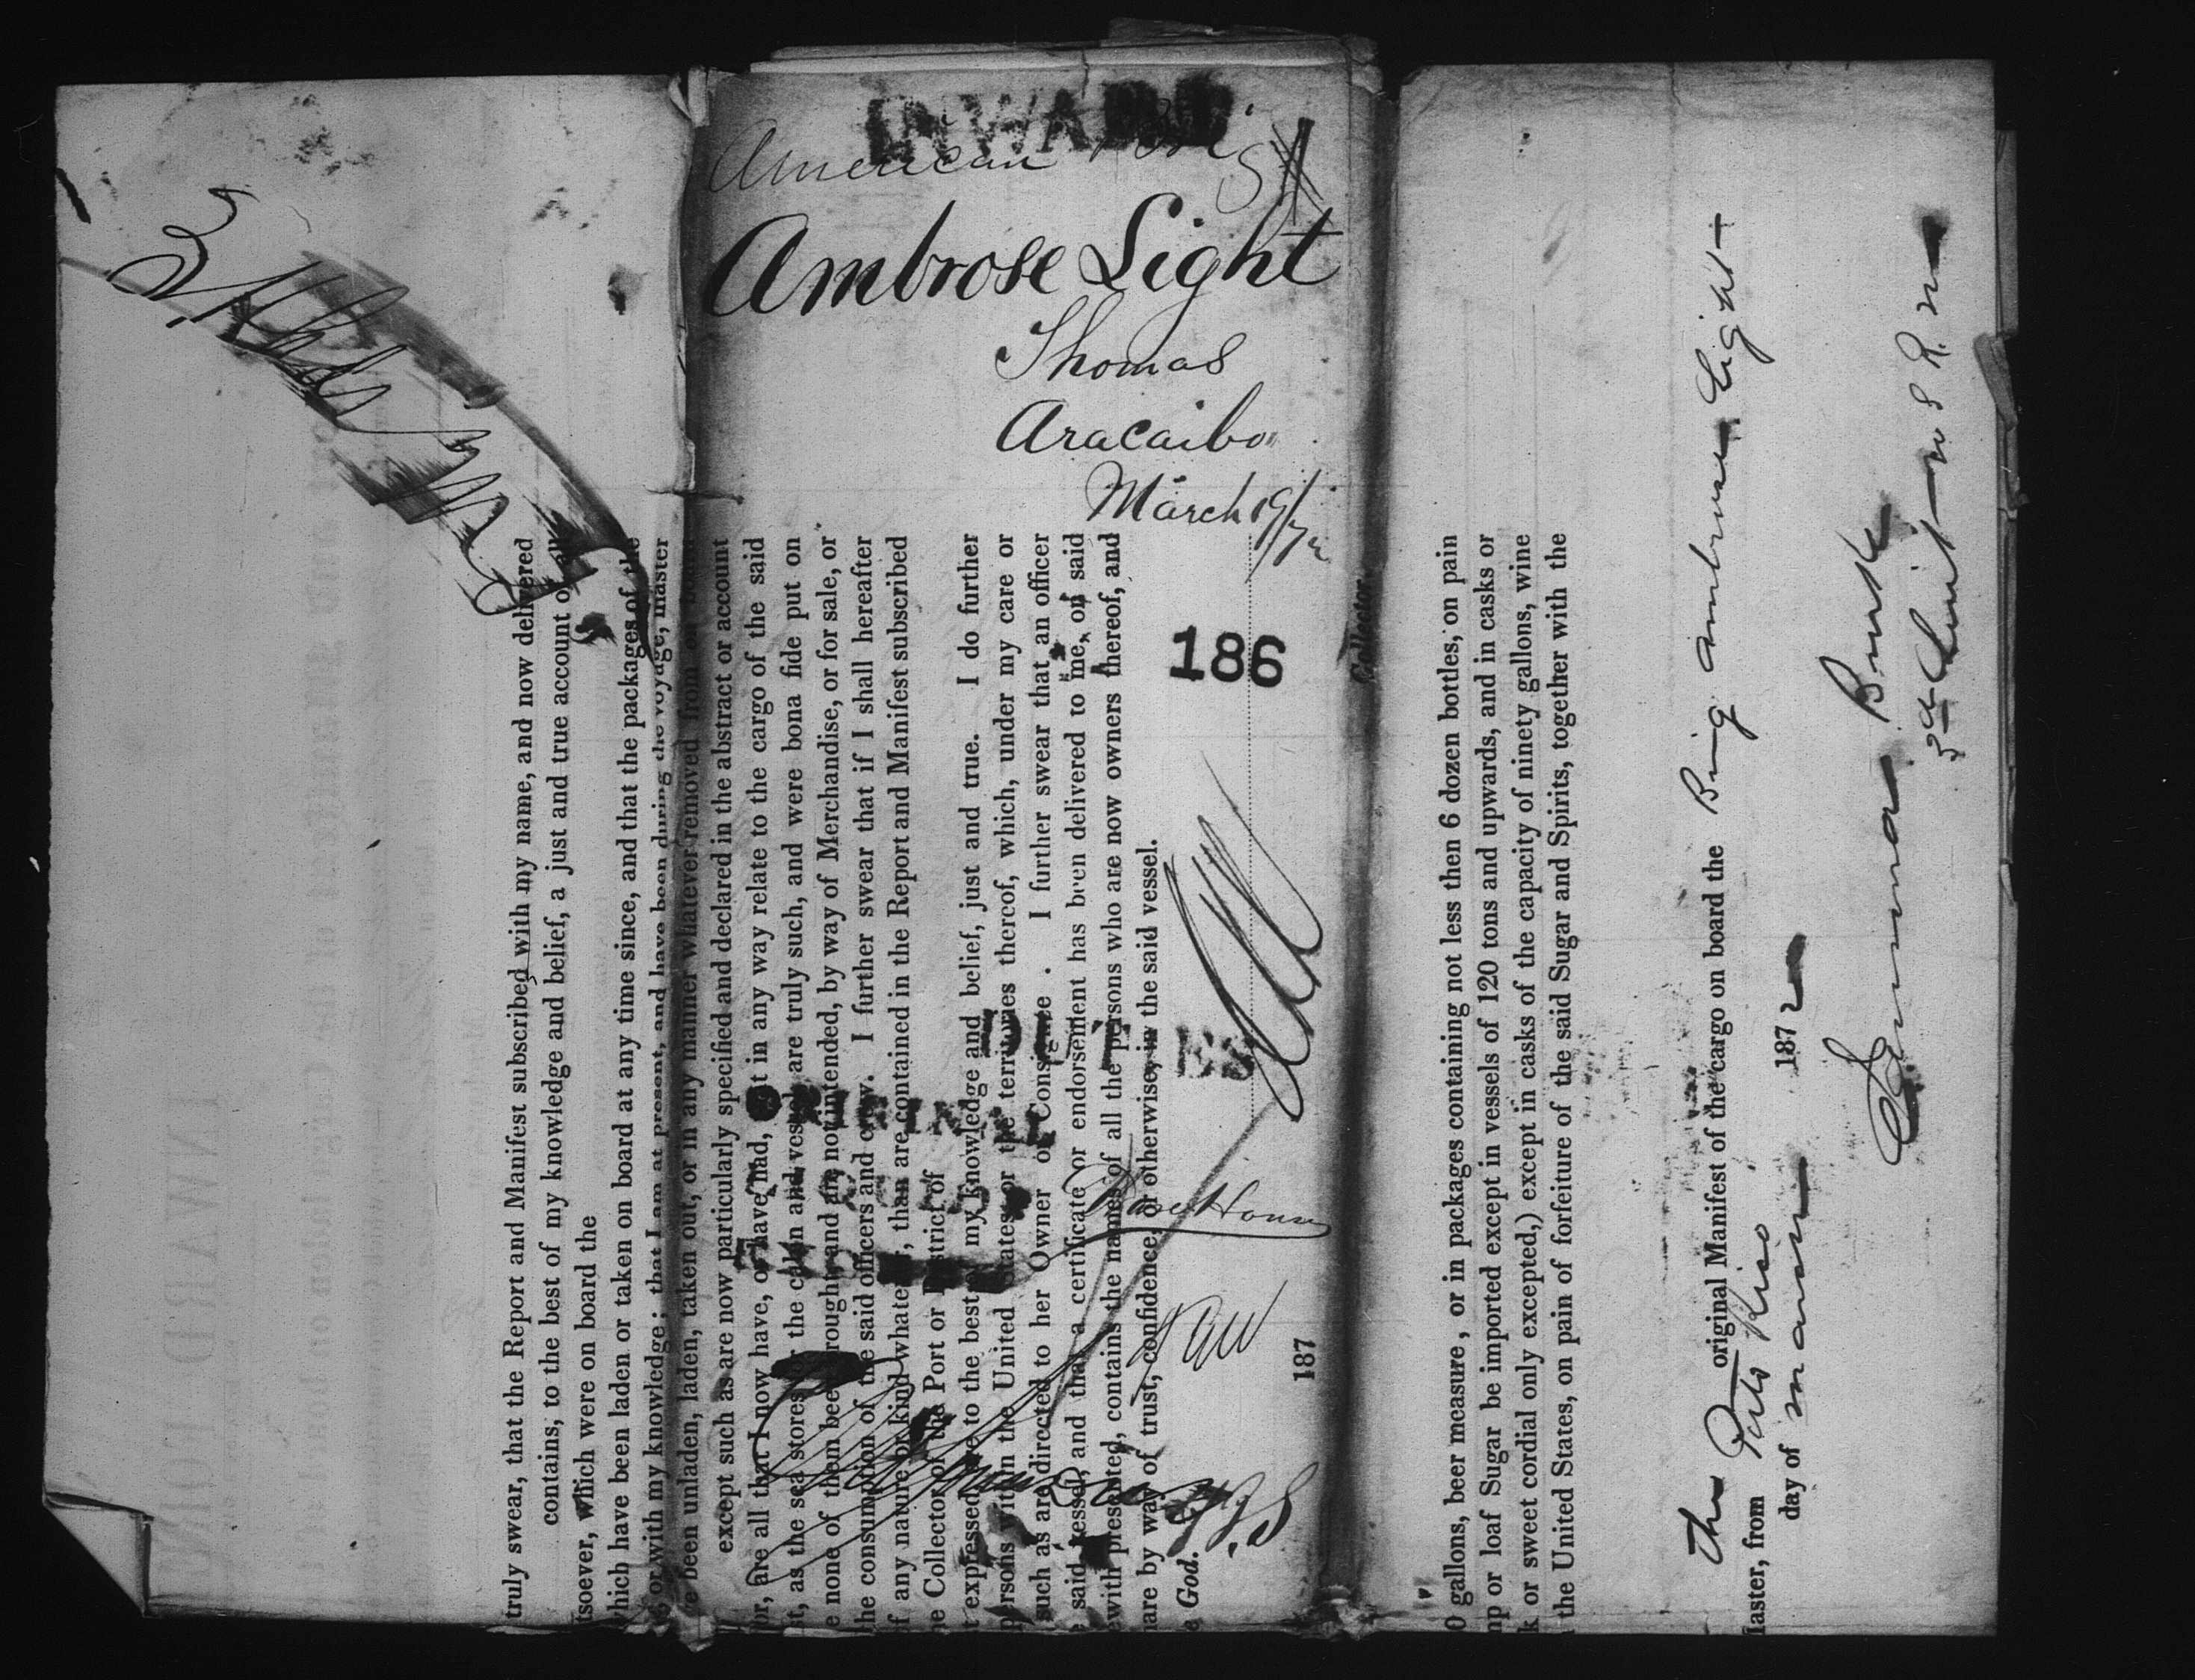 INWARD
American Brig
Ambrose Light
Thomas
Aracaibo
March 19/72
186
truly swear, that the Report and Manifest subscribed with my name, and now delivered
contains, to the best of my knowledge and belief, a just and true account of all
tsoever, which were on board the
which have been laden or taken on board at any time since, and that the packages of the
or with my knowledge; that I am at present, and have been during the voyage, master
been unladen, laden, taken out, or in any manner whatever removed from on board
except such as are now particularly specified and declared in the abstract or account
or, are all that I now have, or have had, in any way relate to the cargo of the said
t, as the sea stores for the cabin and vessel are truly such, and were bona fide put on
e none of them been brought and are not intended, by way of Merchandise, or for sale, or
the consumption of the said officers and crew. I further swear that if I shall hereafter
f any nature or kind whatever, than are contained in the Report and Manifest subscribed
e Collector of the Port or District of
t expressed are to the best of my knowledge and belief, just and true. I do further
persons within the United States or the territories thereof, which, under my care or
such as are directed to her Owner or Consignee . I further swear that an officer
said vessel, and that a certificate or endorsement has been delivered to me, on said
ewith presented, contains the names of all the persons who are now owners thereof, and
are by way of trust, confidence, or otherwise, in the said vessel.
e God.
ORIGINAL
187
Collector.
0 gallons, beer measure, or in packages containing not less then 6 dozen bottles, on pain
np or loaf Sugar be imported except in vessels of 120 tons and upwards, and in casks or
k or sweet cordial only excepted,) except in casks of the capacity of ninety gallons, wine
the United States, on pain of forfeiture of the said Sugar and Spirits, together with the
the original Manifest of the cargo on board the Brig Ambrose Light
laster, from Porto Rico
day of March 1872
Burke
3d Lieut